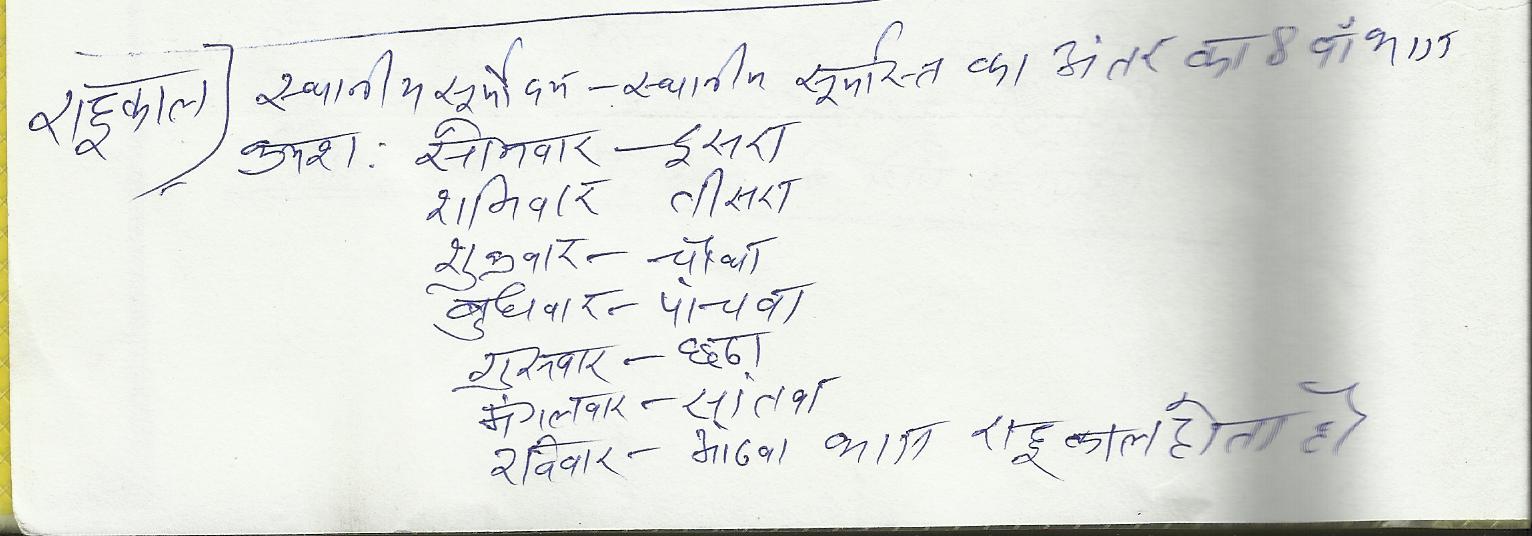 राहुकाल) स्थानीय सूर्योदय - स्थानीय सूर्यास्त का अंतर का 8 वाँ भाग
क्रमश: सोमवार - दूसरा
शनिवार तीसरा
शुक्रवार - चौथा
बुधवार - पांचवा
गुरूवार - छठा
मंगलवार - सांतवा
रविवार - आंठवा भाग राहुकाल होता है